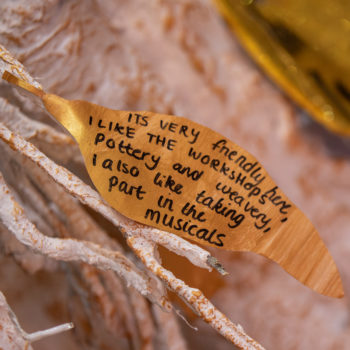 ITS VERY friendly here,
I LIKE THE WORKSHOPS
Pottery and weaving,
i also like taking
Part in the
musicals